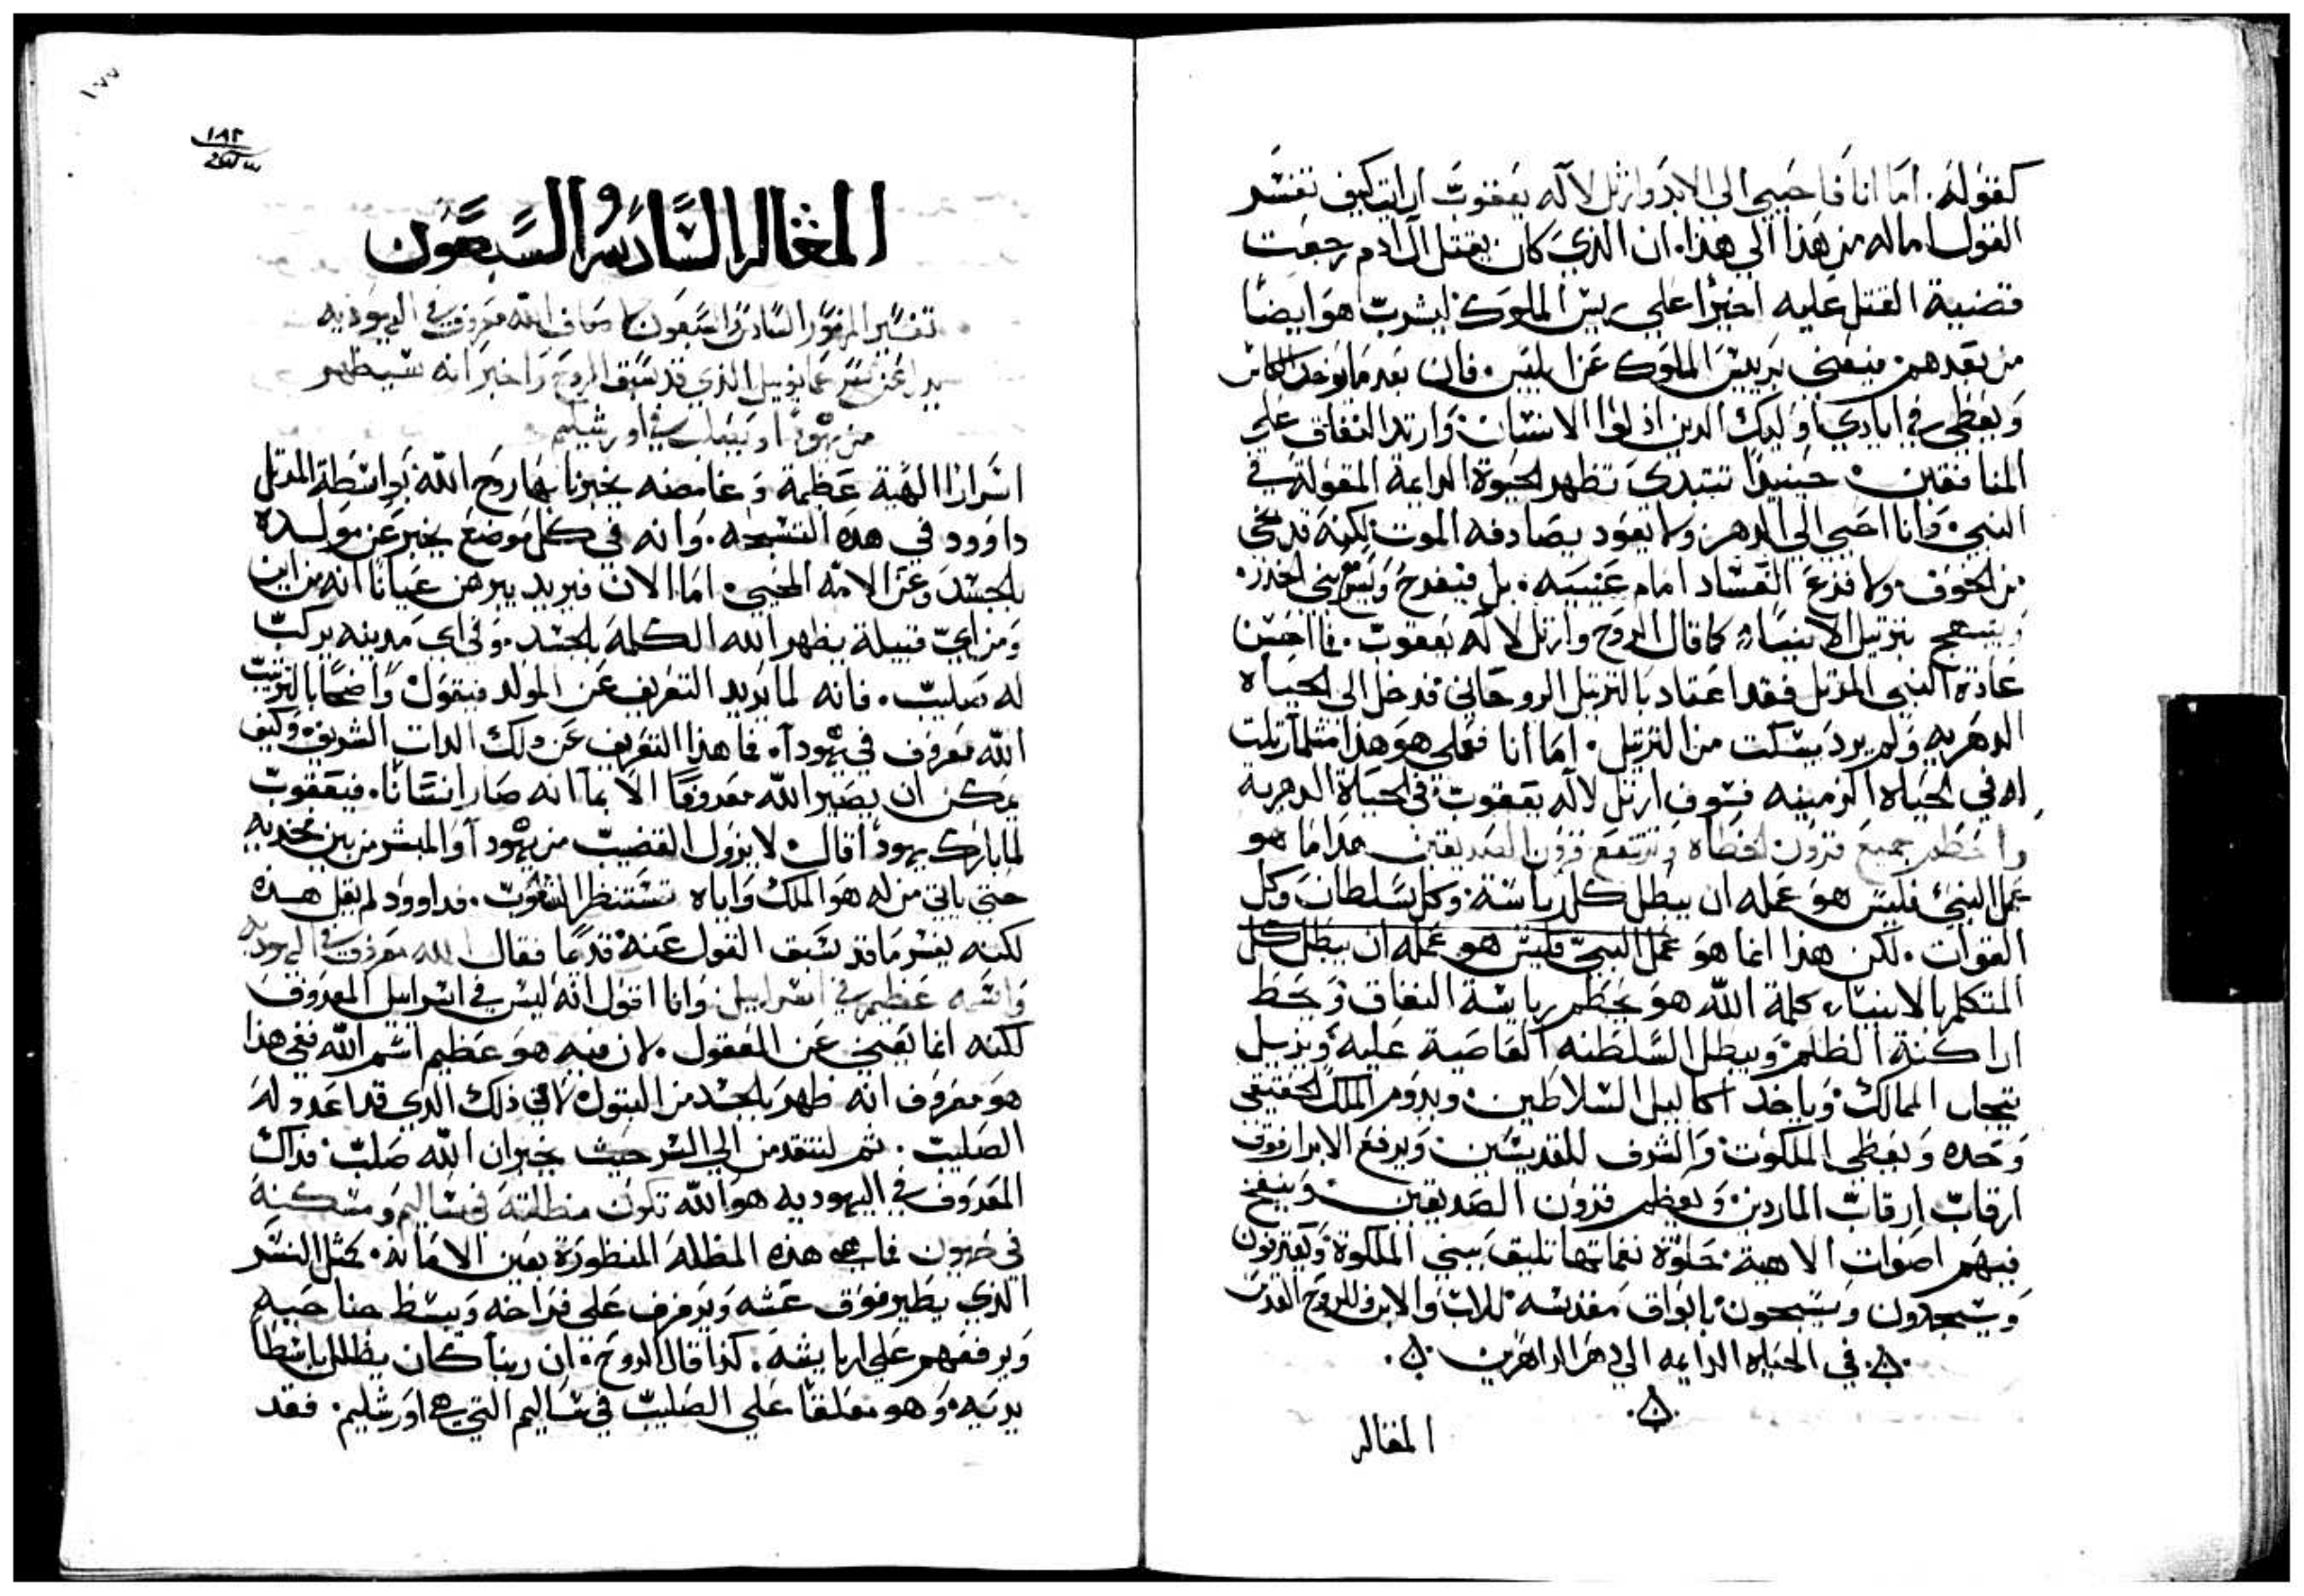 كقوله. اما انا فاحيي الي الابد وارتل لاله يعقوب ارايت كيف تفسر
القول اماله من هذا الي هذا. ان الذي كان يقتل ال ادم رجعت
قضية القتل عليه اخيرا علي ريس الملوك ليشرب هو ايضا
من بعدهم فيعني بريس الملوك عن ابليس. فان بعد ما يوخد الكاس
ويعطي في ايادي اوليك الدين اذلوا الانسان وارتد النفاق علي
المنافقين حينيدا تبتدي تظهر الحيوة الدايمة المقولة في
النبي وانا احيي الي الدهر ولا يعود يصادفه الموت لكنه قد نجي
من الخوف ولا فزع الفساد امام عينيه. بل فيفرح
ويبتهج بترتيل الانبياء كما قال الروح وارتل لاله يعقوب. فما احسن
عادة النبي المرتل فقد اعتاد بالترتيل الروحاني فدخل الي الحياه
الدهريه ولم يرد يسكت من الترتيل. اما انا فعلي هو هذا مثلما رتلت
له في الحياه الزمنيه فسوف ارتل لاله يعقوب في الحياة الدهرية
واحطم جميع قرون الخطاه وترتفع قرون الصديقين هدا ما هو
عمل النبي فليس هو عمله ان يبطل كل رياسة وكل سلطان وكل
القوات. لكن هذا انما هو عمل النبي فليس هو عمله ان يبطل كل
المتكلم بالانبياء كلمة الله هو يحطم رياسة النفاق ويحط
اراكنة الظلم ويبطل السلطنه القاصية عليه ويزيل
تيجان الممالك وياخد اكاليل السلاطين ويدوم الملك الحقيقي
وحده ويعطي الملكوت والشرف للقديسين ويرفع الابرار فوق
ارقاب ارقاب الماردين ويعظم قرون الصديقين وينفخ
فيهم اصوات الاهية بحلوة نغماتها تليق ببني الملكوة
ويسجدون ويسبحون بابواق مقدسه للاب والابن والروح القدس
في الحياه الدايمه الي دهر الداهرين
المقاله
١٨٢
المقاله السادسه والسبعون
تفسير المزمور السادس والسبعون لاساف الله معروف في اليهوديه
عن سر عمانوييل الذي قد سبق الروح واخبر انه سيظهر
من يهودا ويصلب في اورشليم
اسرارا الهية عظمة وغامضه يخبرنا بها روح الله بواسطة المرتل
داوود في هذه التسبحه. وانه في كل موضع يخبر عن مولده
بالجسد وعن الامه المحيي. اما الان فيريد يبرهن عيانا انه من اين
ومن اي قبيلة يظهر الله الكلمة بالجسد وفي اي مدينه يركب
له صليب. فانه لما يريد التعريف عن المولد فيقول واضحا بالترتيب
الله معروف في يهودا. فما هذا التعريف عن ذلك الدات الشريف وكيف
يمكن ان يصير الله معروفا الا بما انه صار انسانا. فيعقوب
لما بارك يهودا قال لا يزول القضيب من يهودا والمبشر من بين فخديه
حتي ياتي من له هو الملك واياه تستنظر الشعوب. فداوود لم يقل هذه
لكنه يفسر ما قد سبق القول عنه قدما فقال الله معروف في اليهوديه
واسمه عظيم في اسراييل وانا اقول انه ليس في اسراييل المعروف
لكنه انما يعني عن المعقول. لان فيه هو عظيم اسم الله ففي هذا
هو معروف انه ظهر بالجسد من البتول لا في ذلك الذي قد اعدد له
الصليب. ثم لنتقدمن الي السر حيث يخبر ان الله صلب فداك
المعروف في اليهوديه هو الله تكون مظلته في ساليم ومسكنه
في صهيون فما هي هذه المظله المنظورة بعين الامانه. كمثل النسر
الذي يطير فوق عشه ويرفرف علي فراخه ويبسط جناحيه
ويرفعهم علي ارياشه. كذا قال الروح ان ربنا كان يظلل باسطا
يديه وهو معلقا علي الصليب في ساليم التي هي اورشليم. فقد